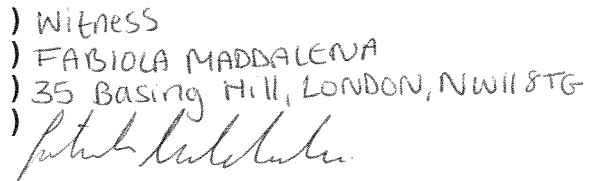 ) Witness
) FABIOLA MADDALENA
) 35 Basing Hill, LONDON, NW11 8TG
)